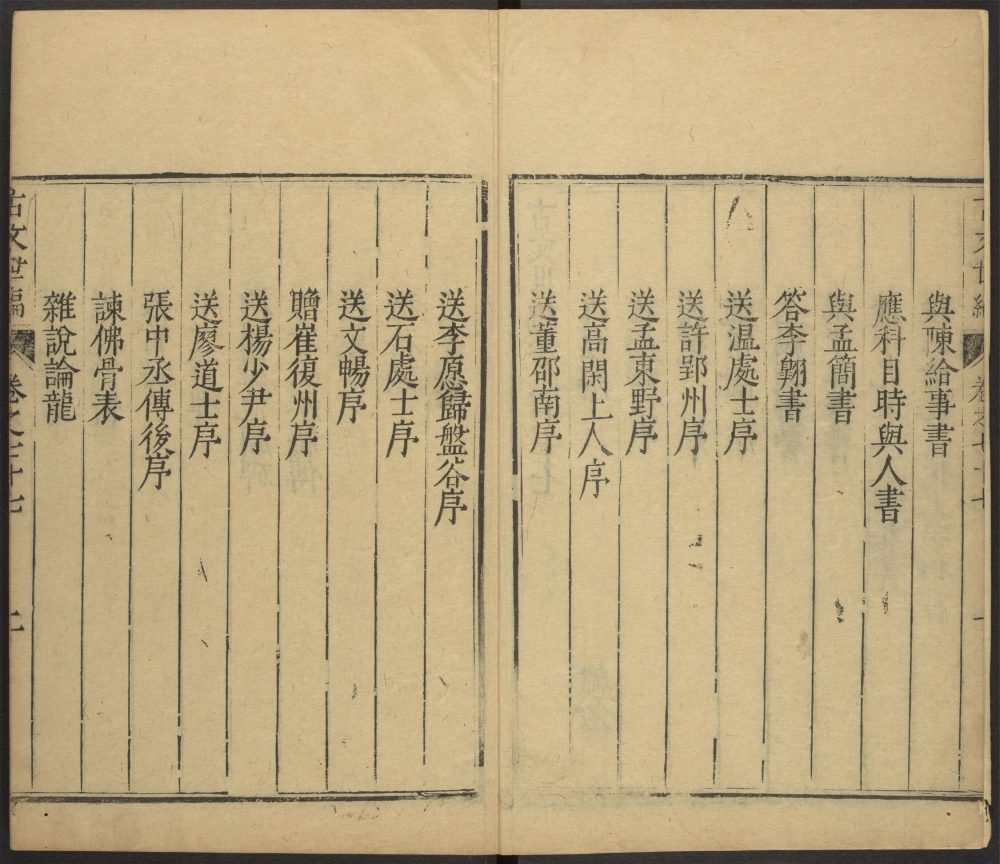 古文世編 卷之七十七 一
與陳給事書
應科目時與人書
與孟簡書
答李翺書
送溫處士序
送許郢州序
送孟東野序
送高閑上人序
送董邵南序
送李愿歸盤谷序
送石處士序
送文暢序
贈崔復州序
送楊少尹序
送廖道士序
張中丞傳後序
諫佛骨表
雜說論龍
古文世編 卷之七十七 二